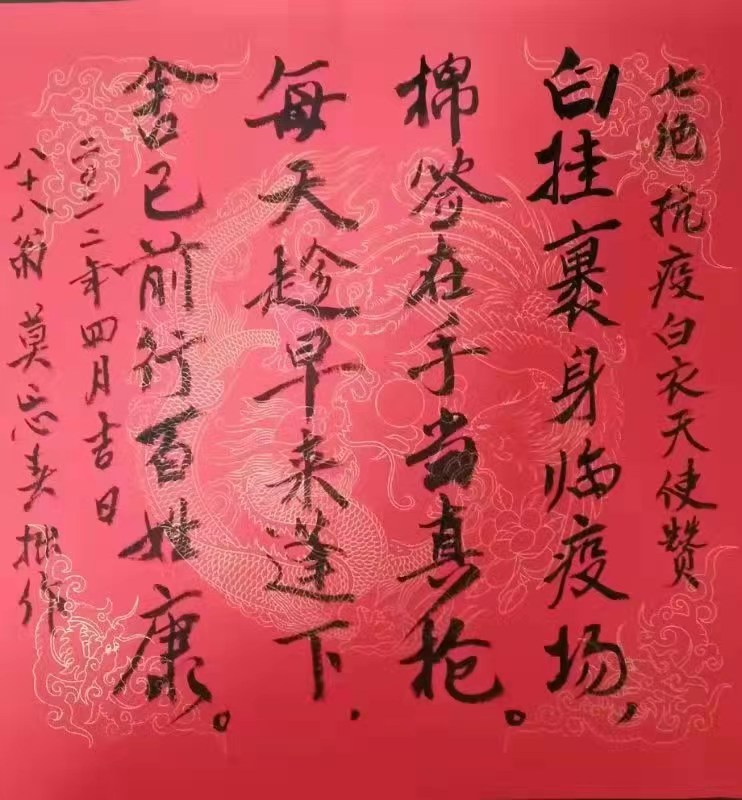 七绝 抗疫白衣天使赞
白挂裹身临疫场，
棉签在手当真枪。
每天趁早来蓬下，
舍己前行百姓康。
二〇二二年四月吉日
八十八翁 莫忘春 拙作